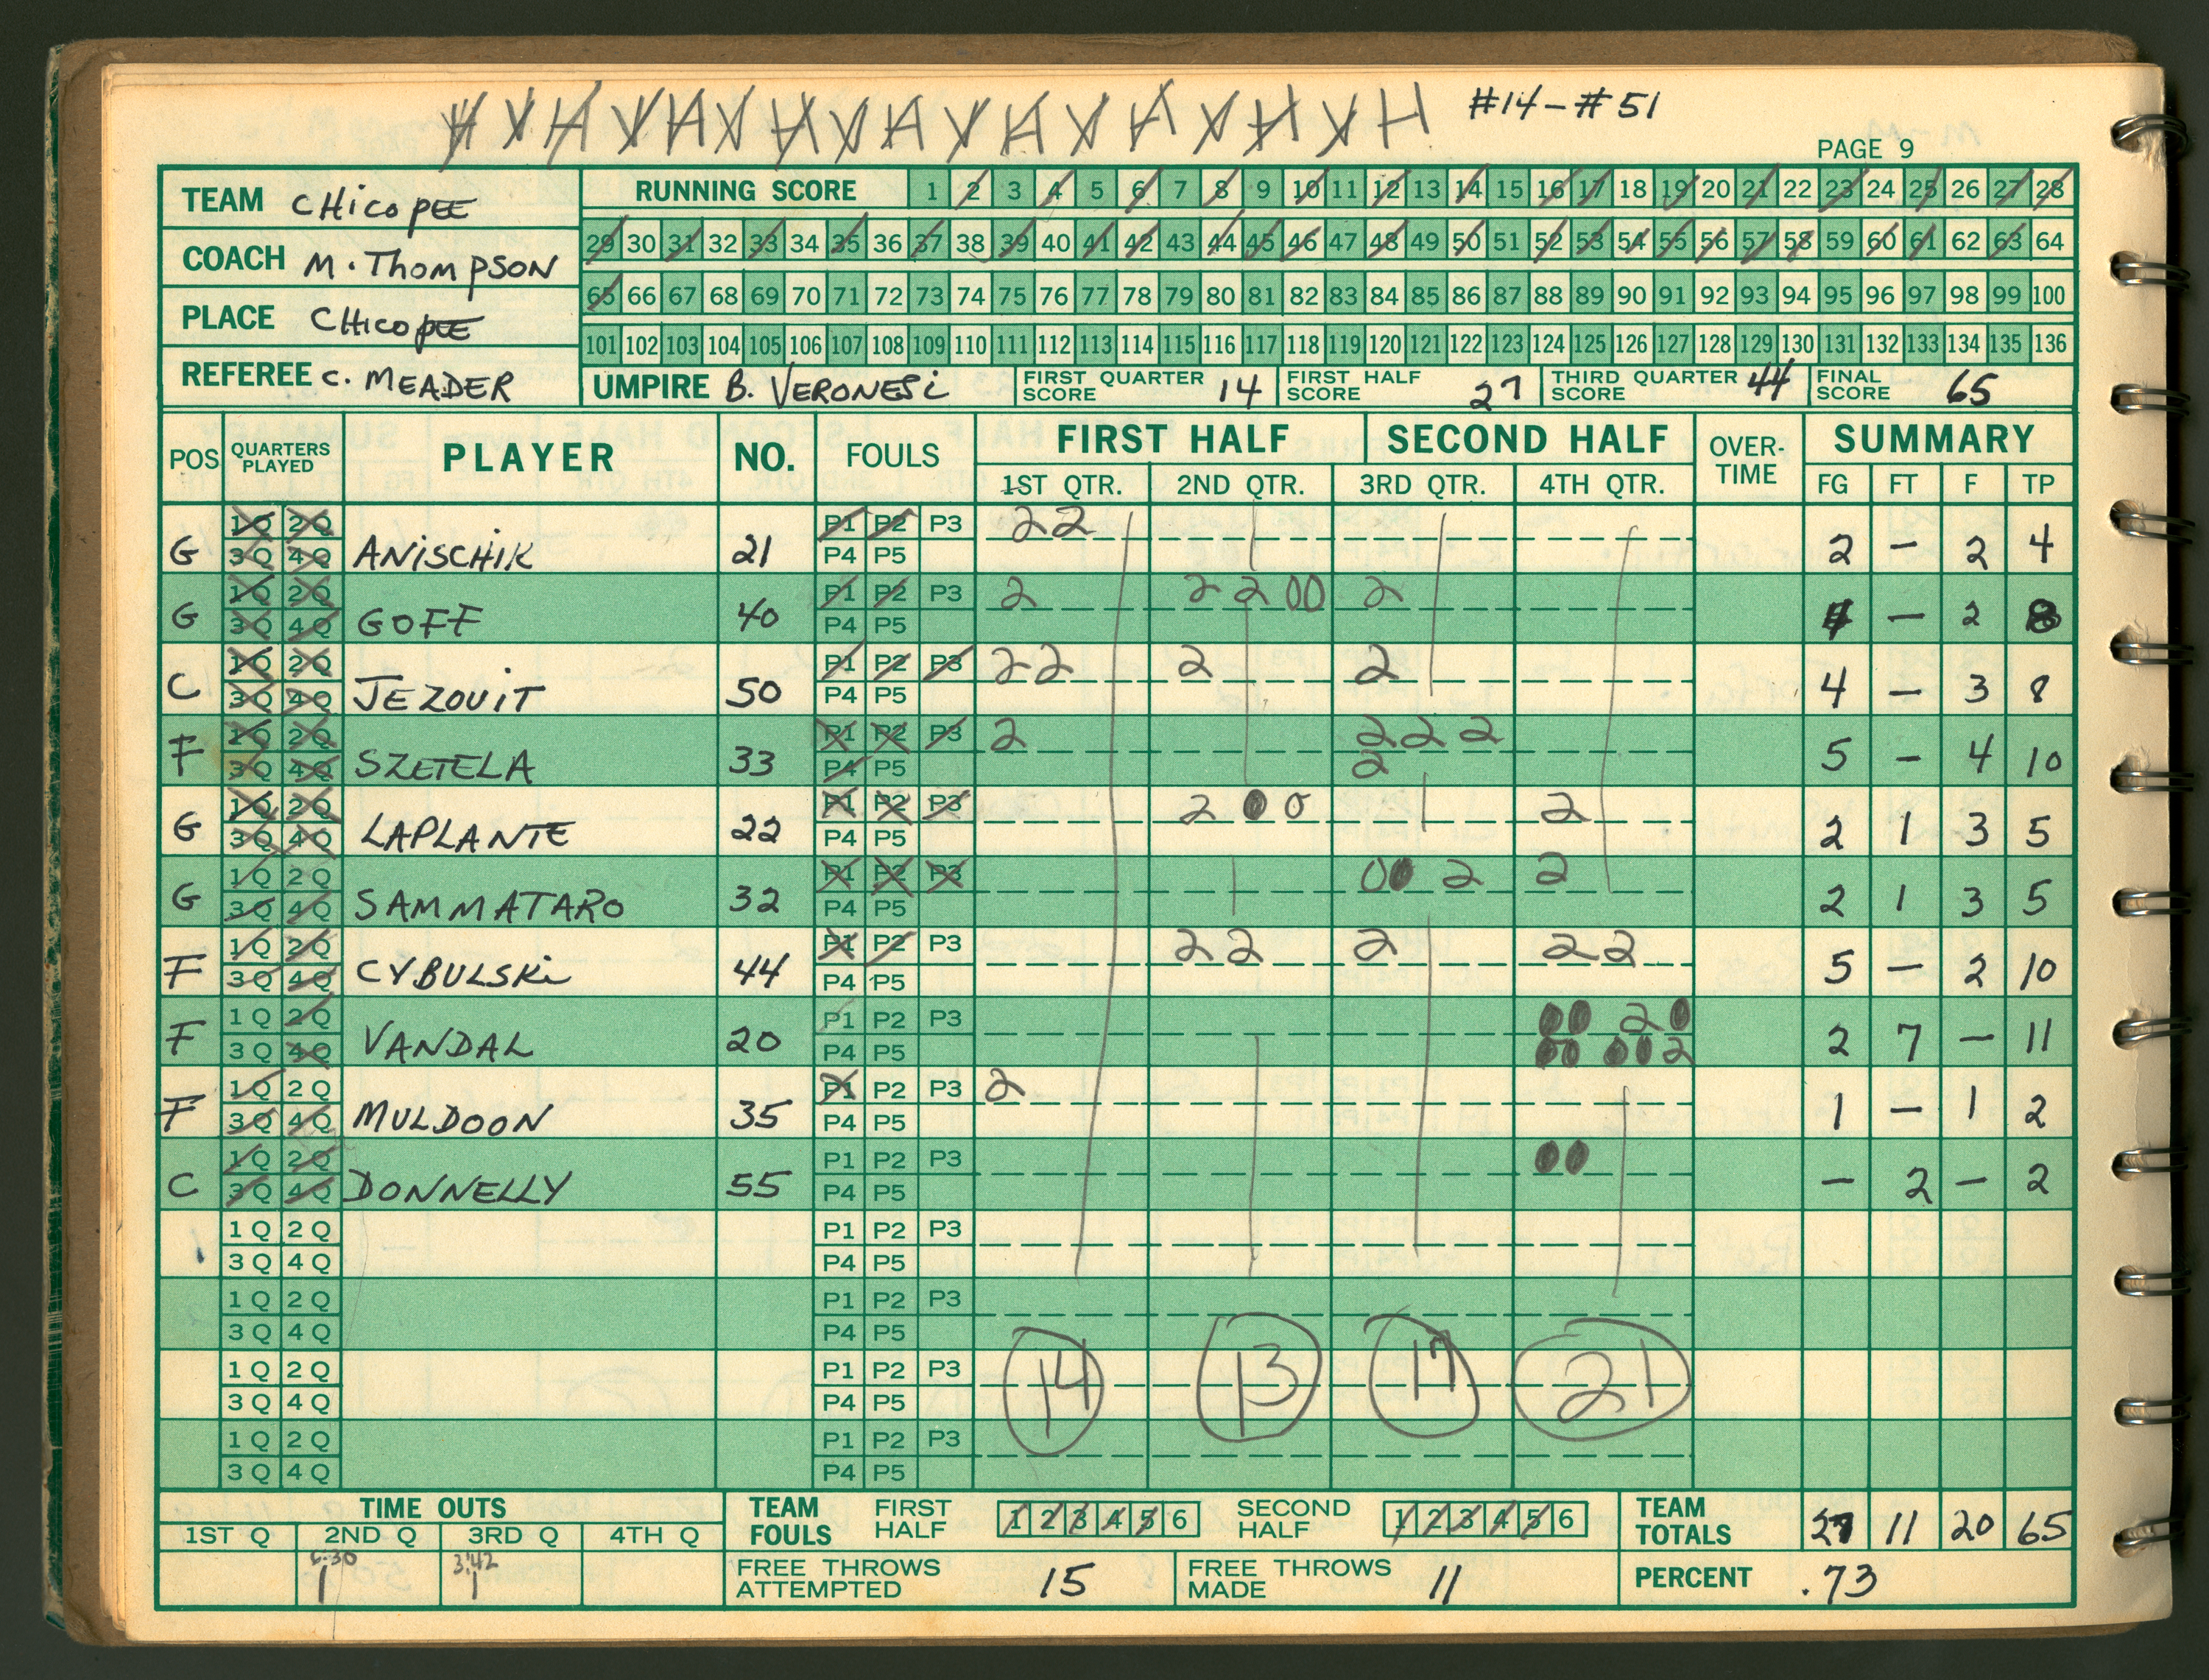 #14-#51
PAGE 9
TEAM CHicoPEE
COACH M. ThomPSON
PLACE CHicoPEE
REFEREE C. MEADER
RUNNING SCORE 1 2 3 4 5 6 7 8 9 10 11 12 13 14 15 16 17 18 19 20 21 22 23 24 25 26 27 28
29 30 31 32 33 34 35 36 37 38 39 40 41 42 43 44 45 46 47 48 49 50 51 52 53 54 55 56 57 58 59 60 61 62 63 64
65 66 67 68 69 70 71 72 73 74 75 76 77 78 79 80 81 82 83 84 85 86 87 88 89 90 91 92 93 94 95 96 97 98 99 100
101 102 103 104 105 106 107 108 109 110 111 112 113 114 115 116 117 118 119 120 121 122 123 124 125 126 127 128 129 130 131 132 133 134 135 136
UMPIRE B. VERONESi FIRST QUARTER SCORE 14 FIRST HALF SCORE 27 THIRD QUARTER SCORE 44 FINAL SCORE 65
POS QUARTERS PLAYED PLAYER NO. FOULS FIRST HALF SECOND HALF OVER-TIME SUMMARY
1ST QTR. 2ND QTR. 3RD QTR. 4TH QTR. FG FT F TP
G 1Q 2Q 3Q 4Q ANiSCHiK 21 P1 P2 P3 P4 P5 22 2 - 2 4
G 1Q 2Q 3Q 4Q GOFF 40 P1 P2 P3 P4 P5 2 2 2 00 2 4 - 2 8
C 1Q 2Q 3Q 4Q JEZOUiT 50 P1 P2 P3 P4 P5 22 2 2 4 - 3 8
F 1Q 2Q 3Q 4Q SZETELA 33 P1 P2 P3 P4 P5 2 2 2 2 2 5 - 4 10
G 1Q 2Q 3Q 4Q LAPLANTE 22 P1 P2 P3 P4 P5 2 0 0 2 2 1 3 5
G 1Q 2Q 3Q 4Q SAMMATARO 32 P1 P2 P3 P4 P5 00 2 2 2 1 3 5
F 1Q 2Q 3Q 4Q CYBULSKi 44 P1 P2 P3 P4 P5 22 2 22 5 - 2 10
F 1Q 2Q 3Q 4Q VANDAL 20 P1 P2 P3 P4 P5 00 2 0 00 00 2 2 7 - 11
F 1Q 2Q 3Q 4Q MULDOON 35 P1 P2 P3 P4 P5 2 1 - 1 2
C 1Q 2Q 3Q 4Q DONNELLY 55 P1 P2 P3 P4 P5 00 - 2 - 2
1Q 2Q P1 P2 P3
3Q 4Q P4 P5
1Q 2Q P1 P2 P3
3Q 4Q P4 P5
1Q 2Q P1 P2 P3
3Q 4Q P4 P5
14 13 17 21
1Q 2Q P1 P2 P3
3Q 4Q P4 P5
TIME OUTS
1ST Q 2ND Q 3RD Q 4TH Q
3:42
1 1
TEAM FOULS FIRST HALF 1 2 3 4 5 6 SECOND HALF 1 2 3 4 5 6 TEAM TOTALS 27 11 20 65
FREE THROWS ATTEMPTED 15 FREE THROWS MADE 11 PERCENT .73